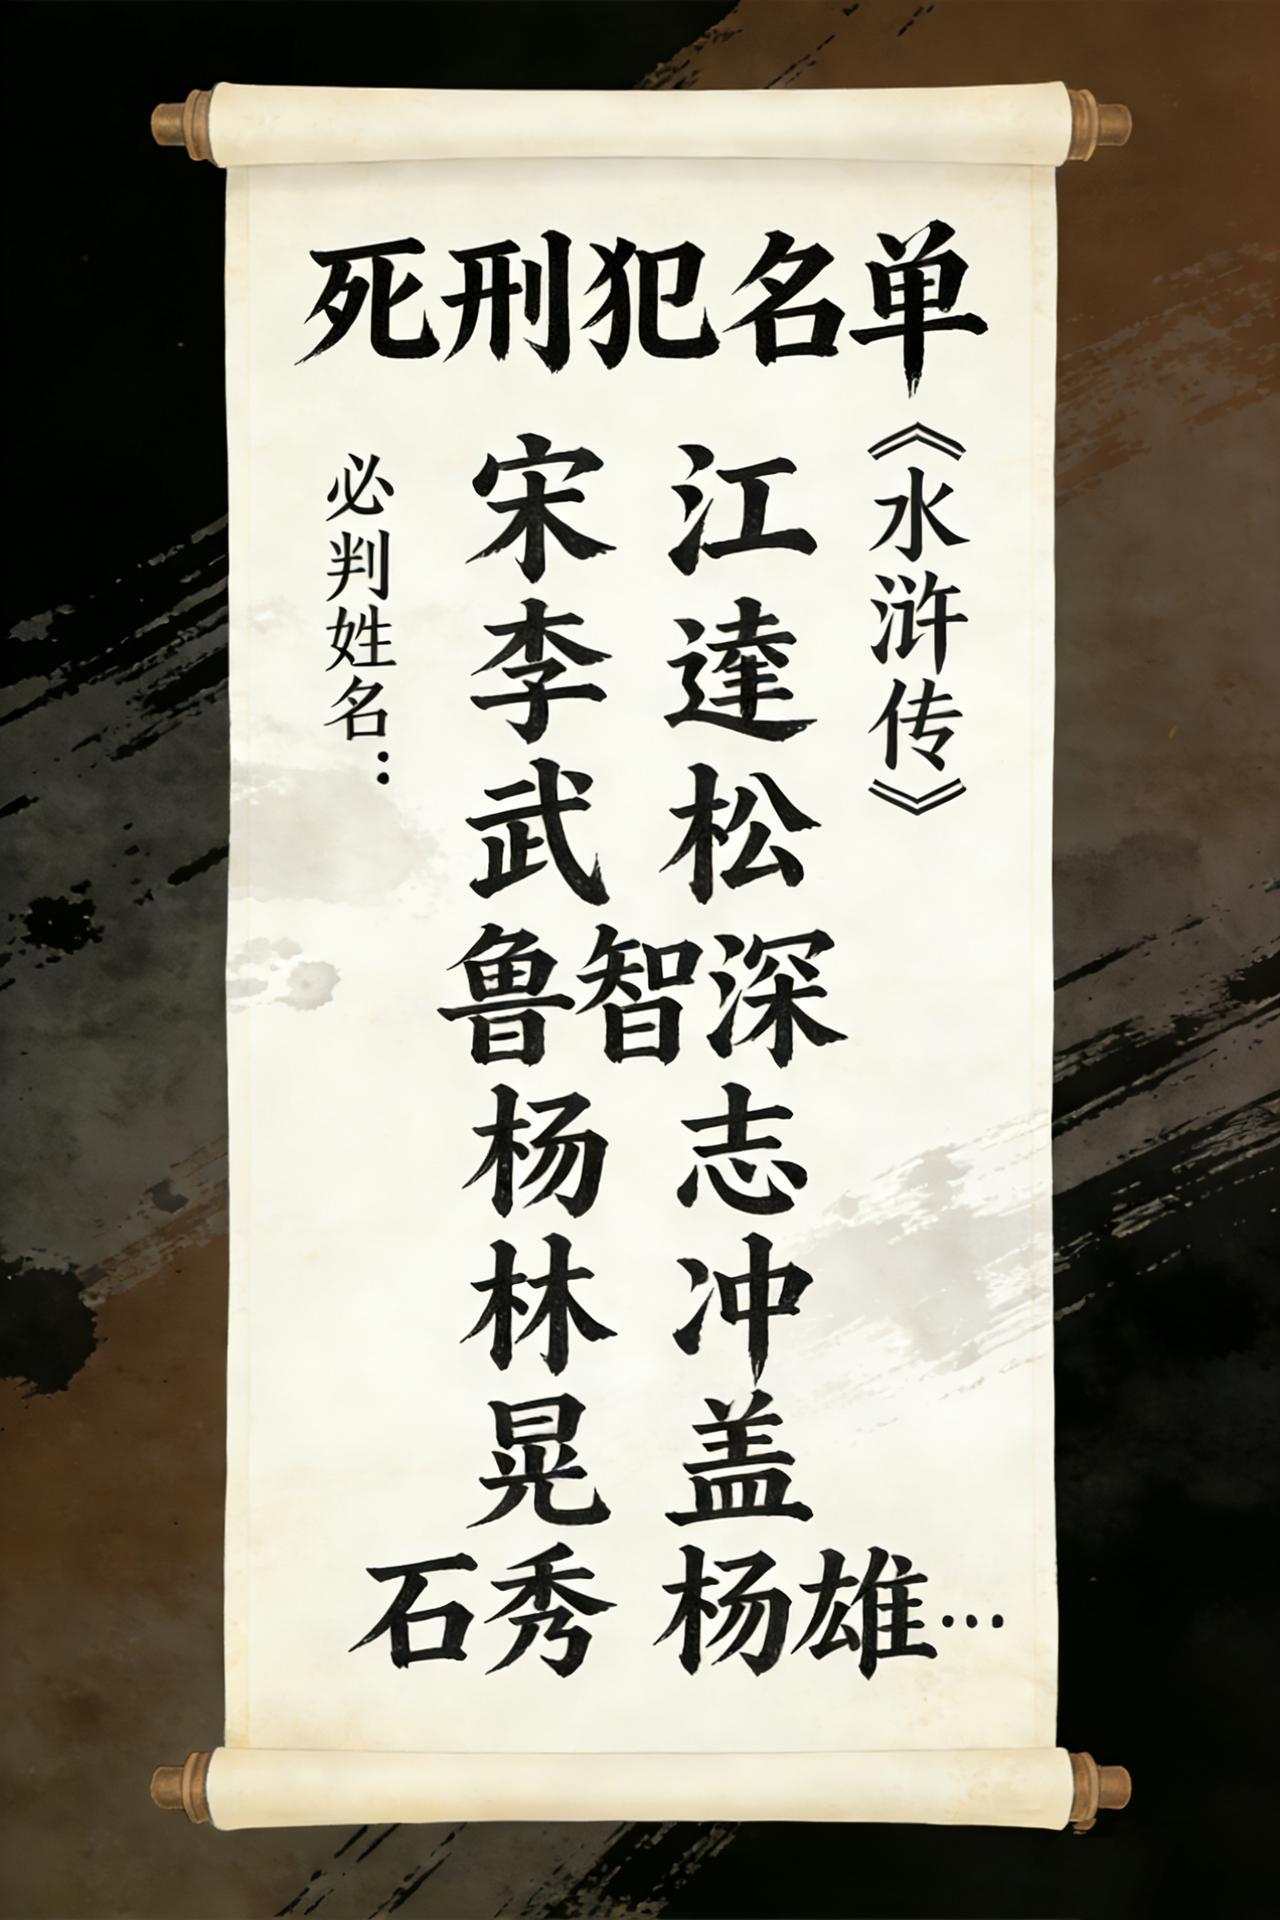 死刑犯名单
《水浒传》
必判姓名：
宋江
李達
武松
鲁智深
杨志
林冲
晃盖
石秀 杨雄…